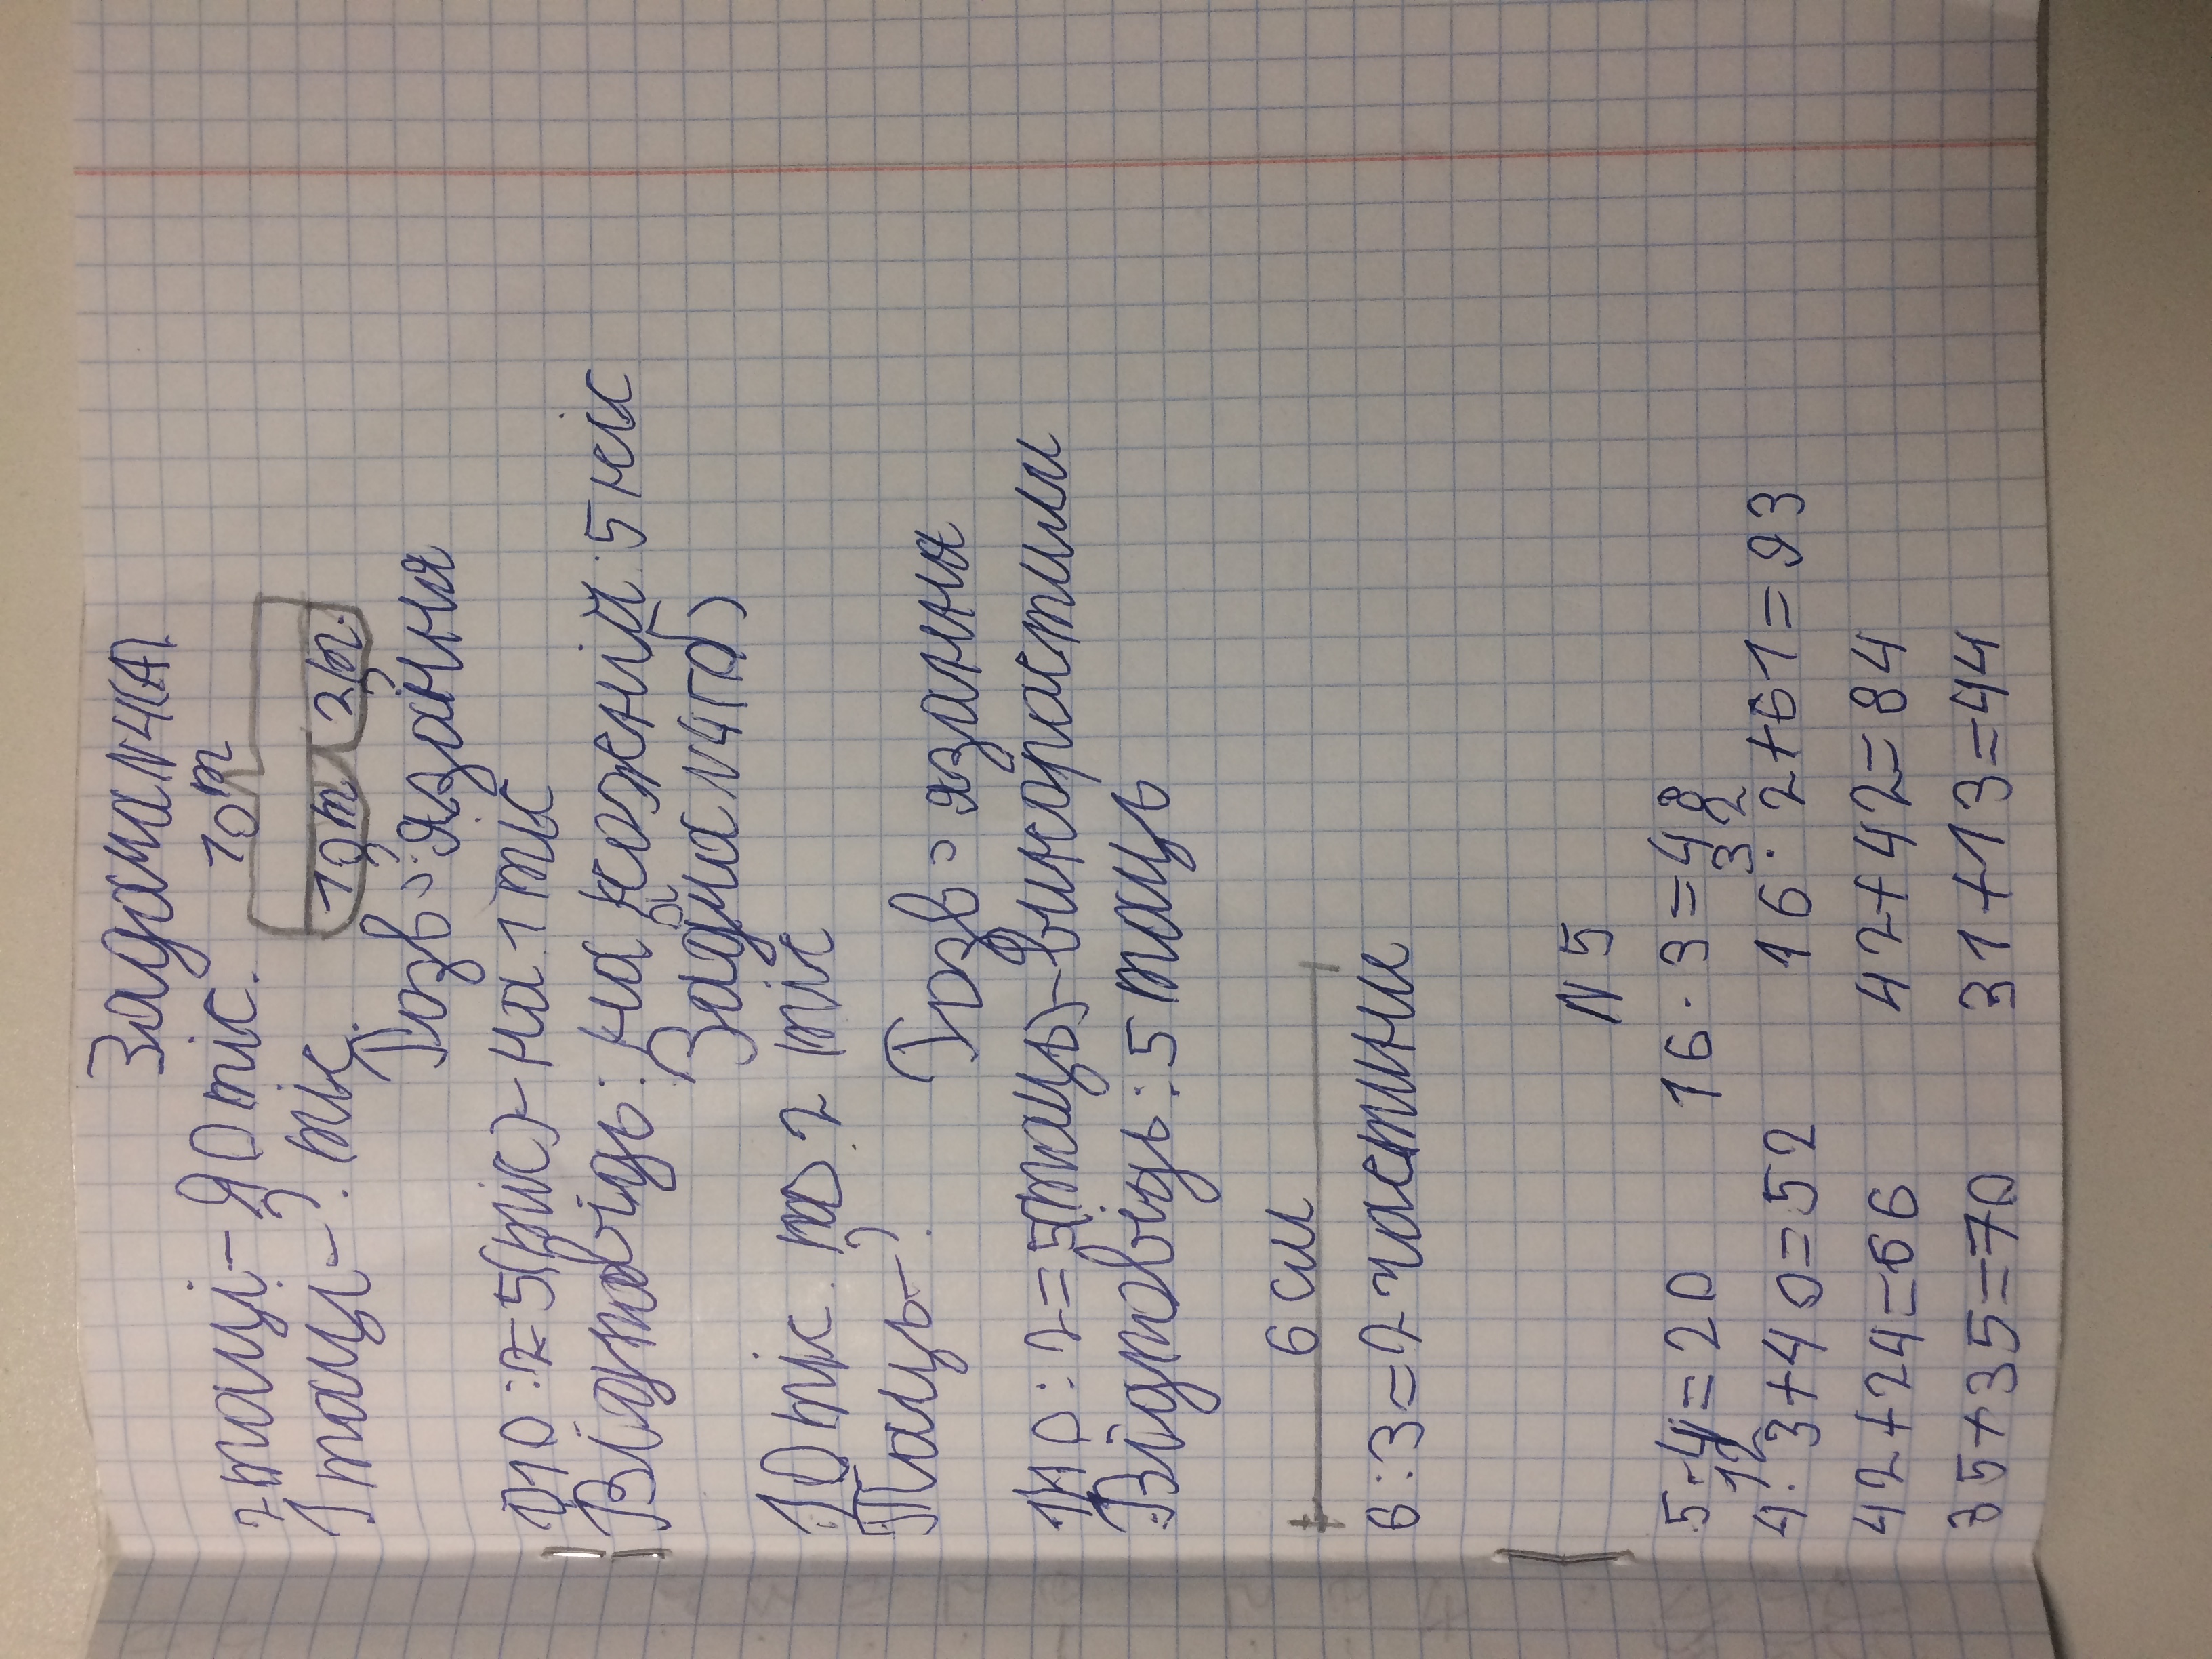 Задача N4(А).
10т
2 таці - 10 тіс.
1т 2т.
1 таці - ? тіс.
Розв'язання
10 : 2 = 5 (тіс) - на 1 тіс
Відповідь: на кожній: 5 тіс
Задача N4(б)
10 тіс. по 2 тіс
Таць - ?
Розв'язання
10 : 2 = 5 (таць) - використали
Відповідь: 5 таць
6 см
6 : 3 = 2 частини
N 5
5 · 4 = 20 16 · 3 = 48
12 32
4 · 3 + 40 = 52 16 · 2 + 61 = 93
42 + 24 = 66 42 + 42 = 84
35 + 35 = 70 31 + 13 = 44